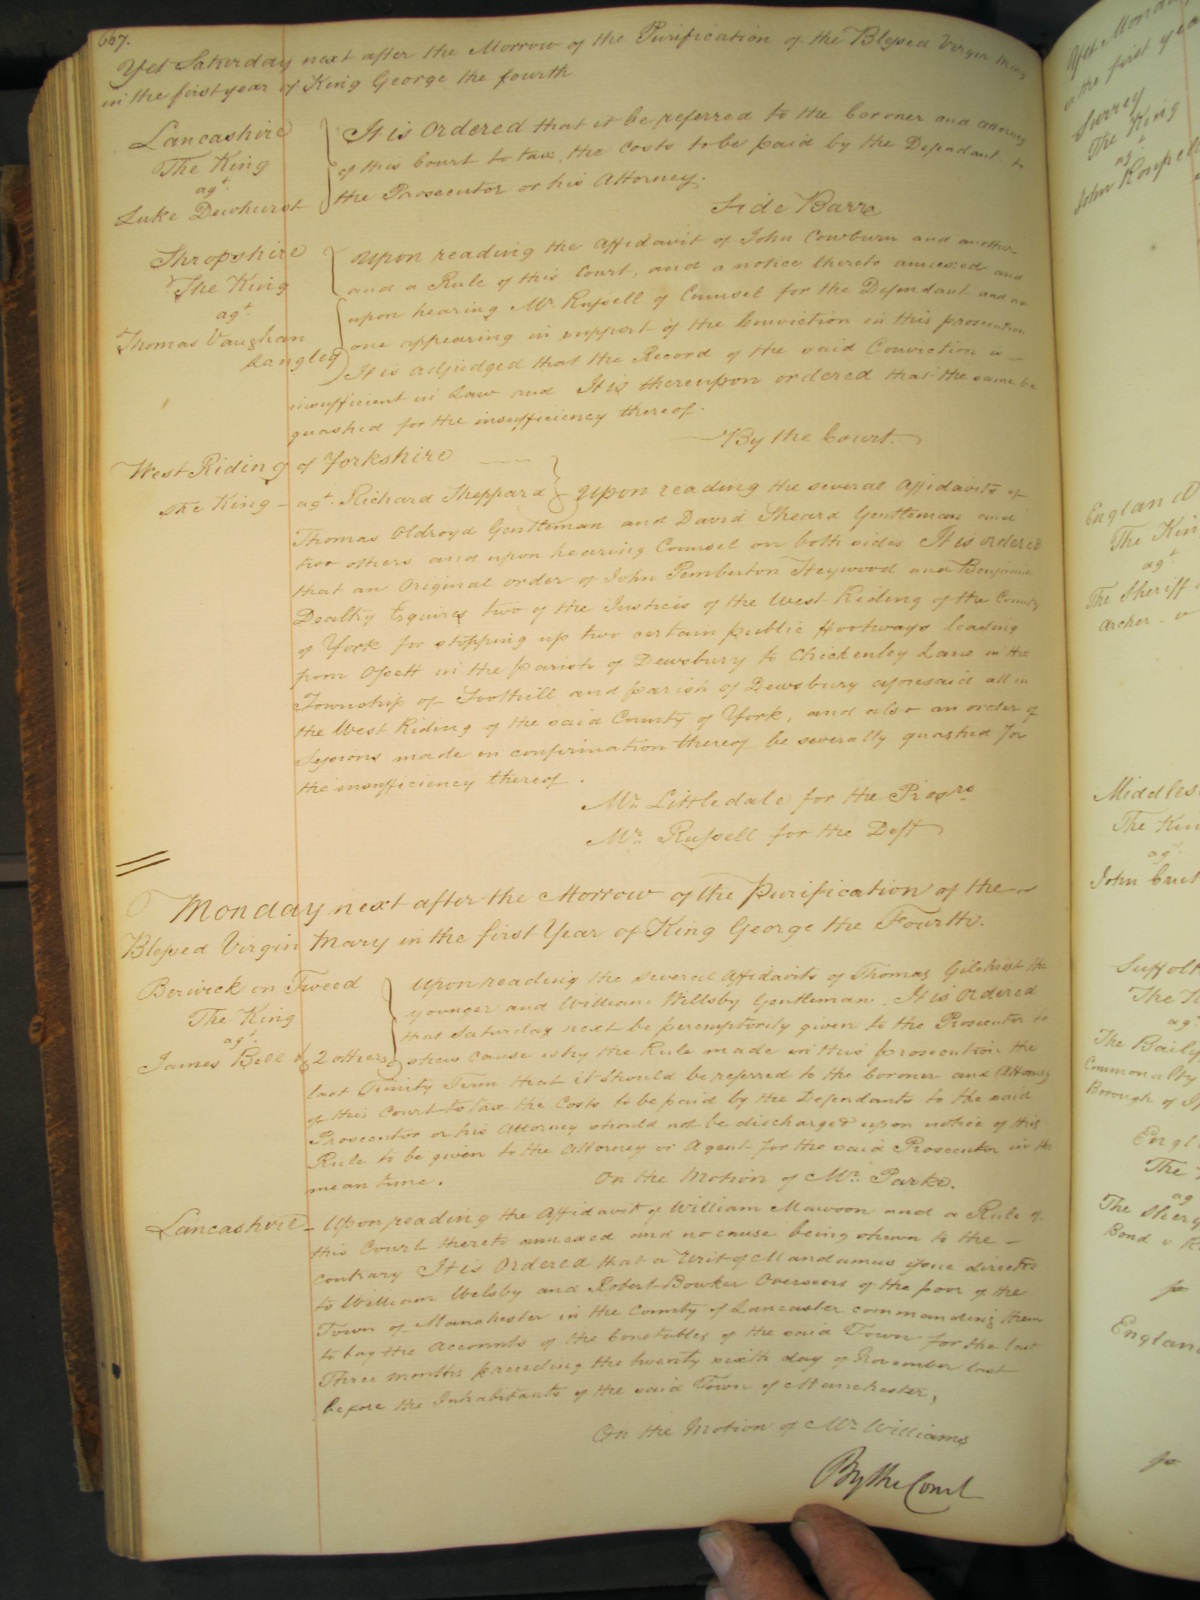 667.
Yet Saturday next after the Morrow of the Purification of the Blessed Virgin Mary
in the first year of King George the fourth
Lancashire
The King
agt.
Luke Dewhurst
It is Ordered that it be referred to the Coroner and Attorney
of this Court to tax the Costs to be paid by the Defendant to
the Prosecutor or his Attorney.
Side Barr
Shropshire
The King
agt.
Thomas Vaughan
Langley
Upon reading the Affidavit of John Cowburn and another
and a Rule of this Court, and a notice thereto annexed and
upon hearing Mr. Russell of Counsel for the Defendant and no
one appearing in support of the Conviction in this prosecution
It is adjudged that the Record of the said Conviction is
insufficient in Law and It is thereupon ordered that the same be
quashed for the insufficiency thereof.
By the Court.
West Riding of Yorkshire
The King agt. Richard Sheppard Upon reading the several Affidavits of
Thomas Oldroyd Gentleman and David Sheard Gentleman and
two others and upon hearing Counsel on both sides It is ordered
that an Original order of John Pemberton Heywood and Benjamin
Dealtry Esquires two of the Justices of the West Riding of the County
of York for stopping up two certain public footways leading
from Ossett in the parish of Dewsbury to Chickenley Lane in the
Township of Soothill and parish of Dewsbury aforesaid all in
the West Riding of the said County of York, and also an order of
Sessions made in confirmation thereof be severally quashed for
the insufficiency thereof.
Mr. Littledale for the Prosrs
Mr. Russell for the Deft
Monday next after the Morrow of the Purification of the
Blessed Virgin Mary in the first Year of King George the Fourth.
Berwick on Tweed
The King
agt.
James Bell & 2 others
Upon reading the several Affidavits of Thomas Gilchrist the
younger and William Willsby Gentleman. It is Ordered
that Saturday next be peremptorily given to the Prosecutor to
shew cause why the Rule made in this prosecution the
last Trinity Term that it should be referred to the Coroner and Attorney
of this Court to tax the Costs to be paid by the Defendants to the said
Prosecutor or his Attorney should not be discharged upon notice of this
Rule to be given to the Attorney or Agent for the said Prosecutor in the
mean time.
On the Motion of Mr. Parke.
Lancashire Upon reading the Affidavit of William Mawson and a Rule of
this Court thereto annexed and no cause being shewn to the
contrary It is Ordered that a Writ of Mandamus issue directed
to William Welsby and Robert Bowker Overseers of the poor of the
Town of Manchester in the County of Lancaster commanding them
to lay the Accounts of the Constables of the said Town for the last
Three months preceding the twenty sixth day of November last
before the Inhabitants of the said Town of Manchester,
On the Motion of Mr. Williams
By the Court
Yet Monday
in the first year
Surrey
The King
agt
John
England
The King
agt
The Sheriff
Archer v
Middles
The Kin
agt.
John
Suffolk
The K
agt
The Baily
Commonalty
Borough of
Engl
The
ag
The Sher
Bond v
Englan